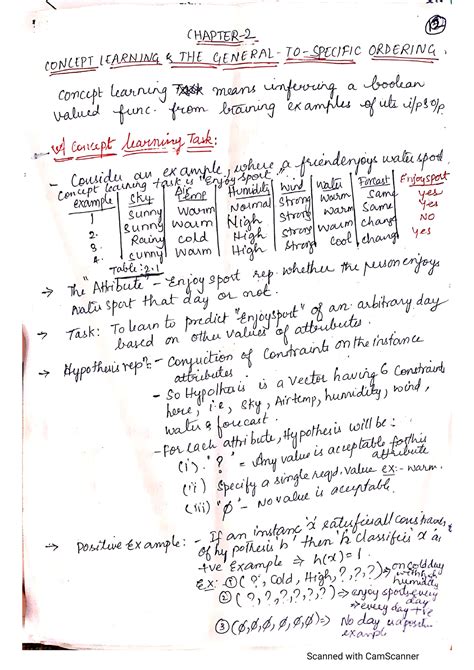 2
CHAPTER-2
CONCEPT LEARNING & THE GENERAL-TO-SPECIFIC ORDERING.
Concept learning means inferring a boolean
valued func. from training examples of its i/p & o/p.
Concept learning Task:
- Consider an example, where a friend enjoys water sport.
Concept learning task is "Enjoy sport".
example | Sky | Air Temp | Humidity | Wind | Water | Forcast | Enjoysport
1 | Sunny | Warm | Normal | Strong | Warm | Same | Yes
2. | Sunny | Warm | High | Strong | Warm | Same | Yes
3. | Rainy | Cold | High | Strong | Warm | change | NO
4. | Sunny | Warm | High | Strong | Cool | change | Yes
Table: 2.1
→ The Attribute - Enjoy sport rep. whether the person enjoys
water sport that day or not.
→ Task: To learn to predict "Enjoysport" of an arbitrary day
based on other values of attributes.
→ Hypothesis repn: - Conjuction of Constraints on the instance
attributes
- So Hypothesis is a Vector having 6 Constraints
here, i.e, Sky, Air temp, humidity, wind,
water & forecast.
- For each attribute, Hypothesis will be:
(i) '?' = Any value is acceptable for this
attribute
(ii) Specify a single reqd. value ex:- warm.
(iii) "Ø" - No value is acceptable.
→ Positive Example: - If an instanc 'x' satisfies all constraints
of hypothesis 'h' then 'h' classifies 'x' as
+ve Example ⇒ h(x)=1.
Ex: ① (?, Cold, High, ?, ?, ?) ⇒ on cold day
with high
humidity
② (?, ?, ?, ?, ?, ?) ⇒ enjoy sports every
day
⇒ every day +ve
③ (Ø, Ø, Ø, Ø, Ø, Ø) ⇒ No day
example
Scanned with CamScanner